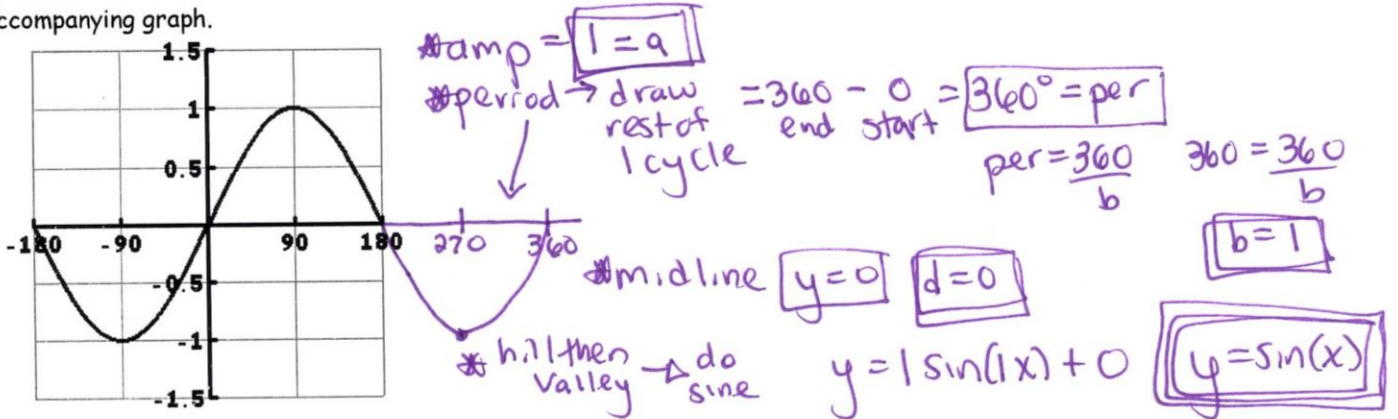 ccompanying graph.
1.5
1
0.5
-180 -90 90 180 270 360
-0.5
-1
-1.5
*amp = 1 = a
*period → draw rest of 1 cycle = 360 - 0 = 360° = per
end start
per = 360/b 360 = 360/b
b = 1
*midline y = 0 d = 0
* hill then valley → do sine
y = 1 sin(1x) + 0 y = sin(x)